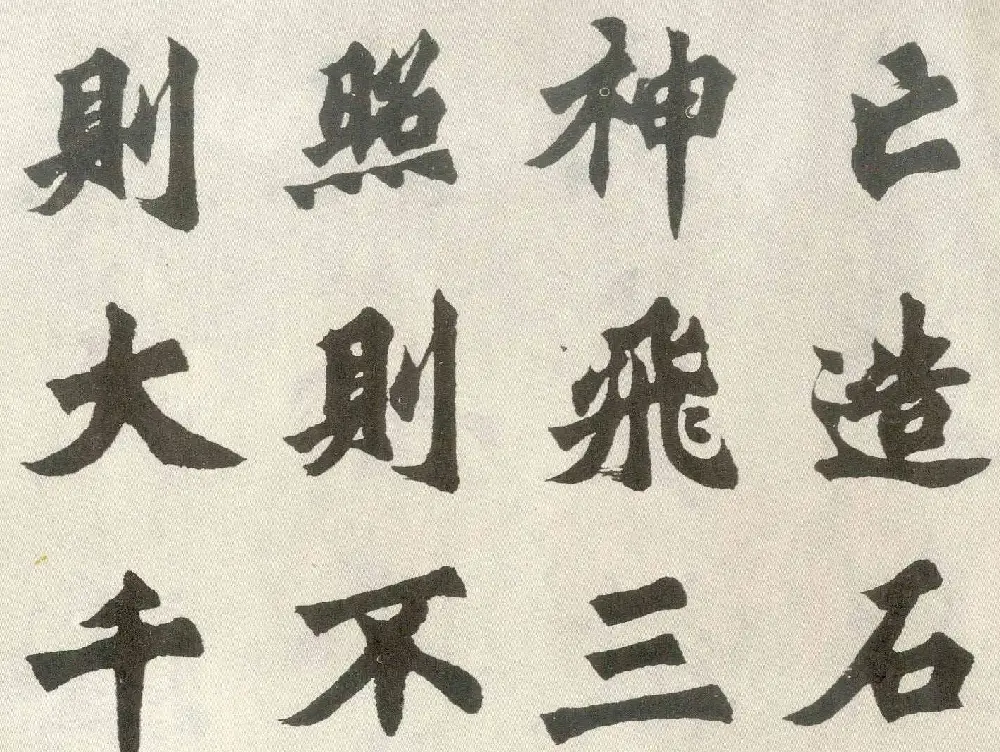 亡造石
神飛三
照則不
則大千